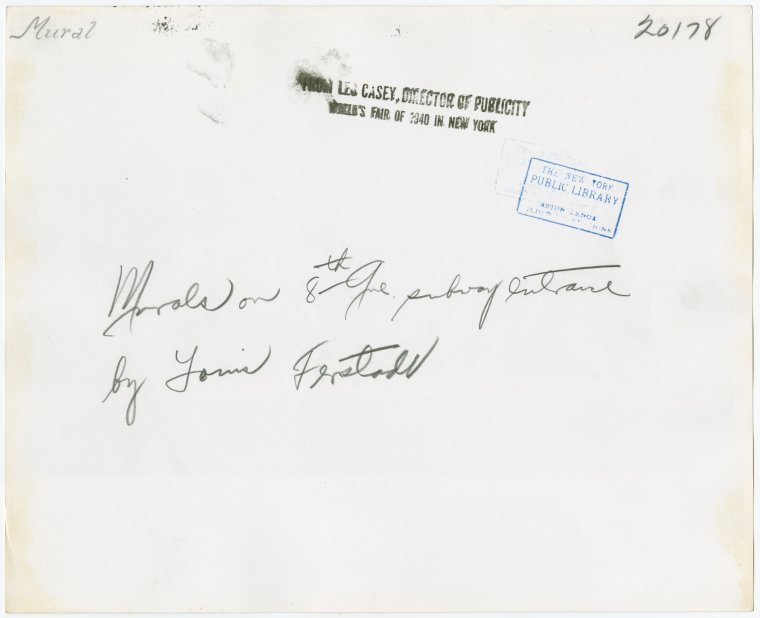 Mural
20178
FROM LEO CASEY, DIRECTOR OF PUBLICITY
WORLD'S FAIR OF 1940 IN NEW YORK
THE NEW YORK
PUBLIC LIBRARY
ASTOR LENOX
Murals on 8th Ave. subway entrance
by Louis Ferstadt